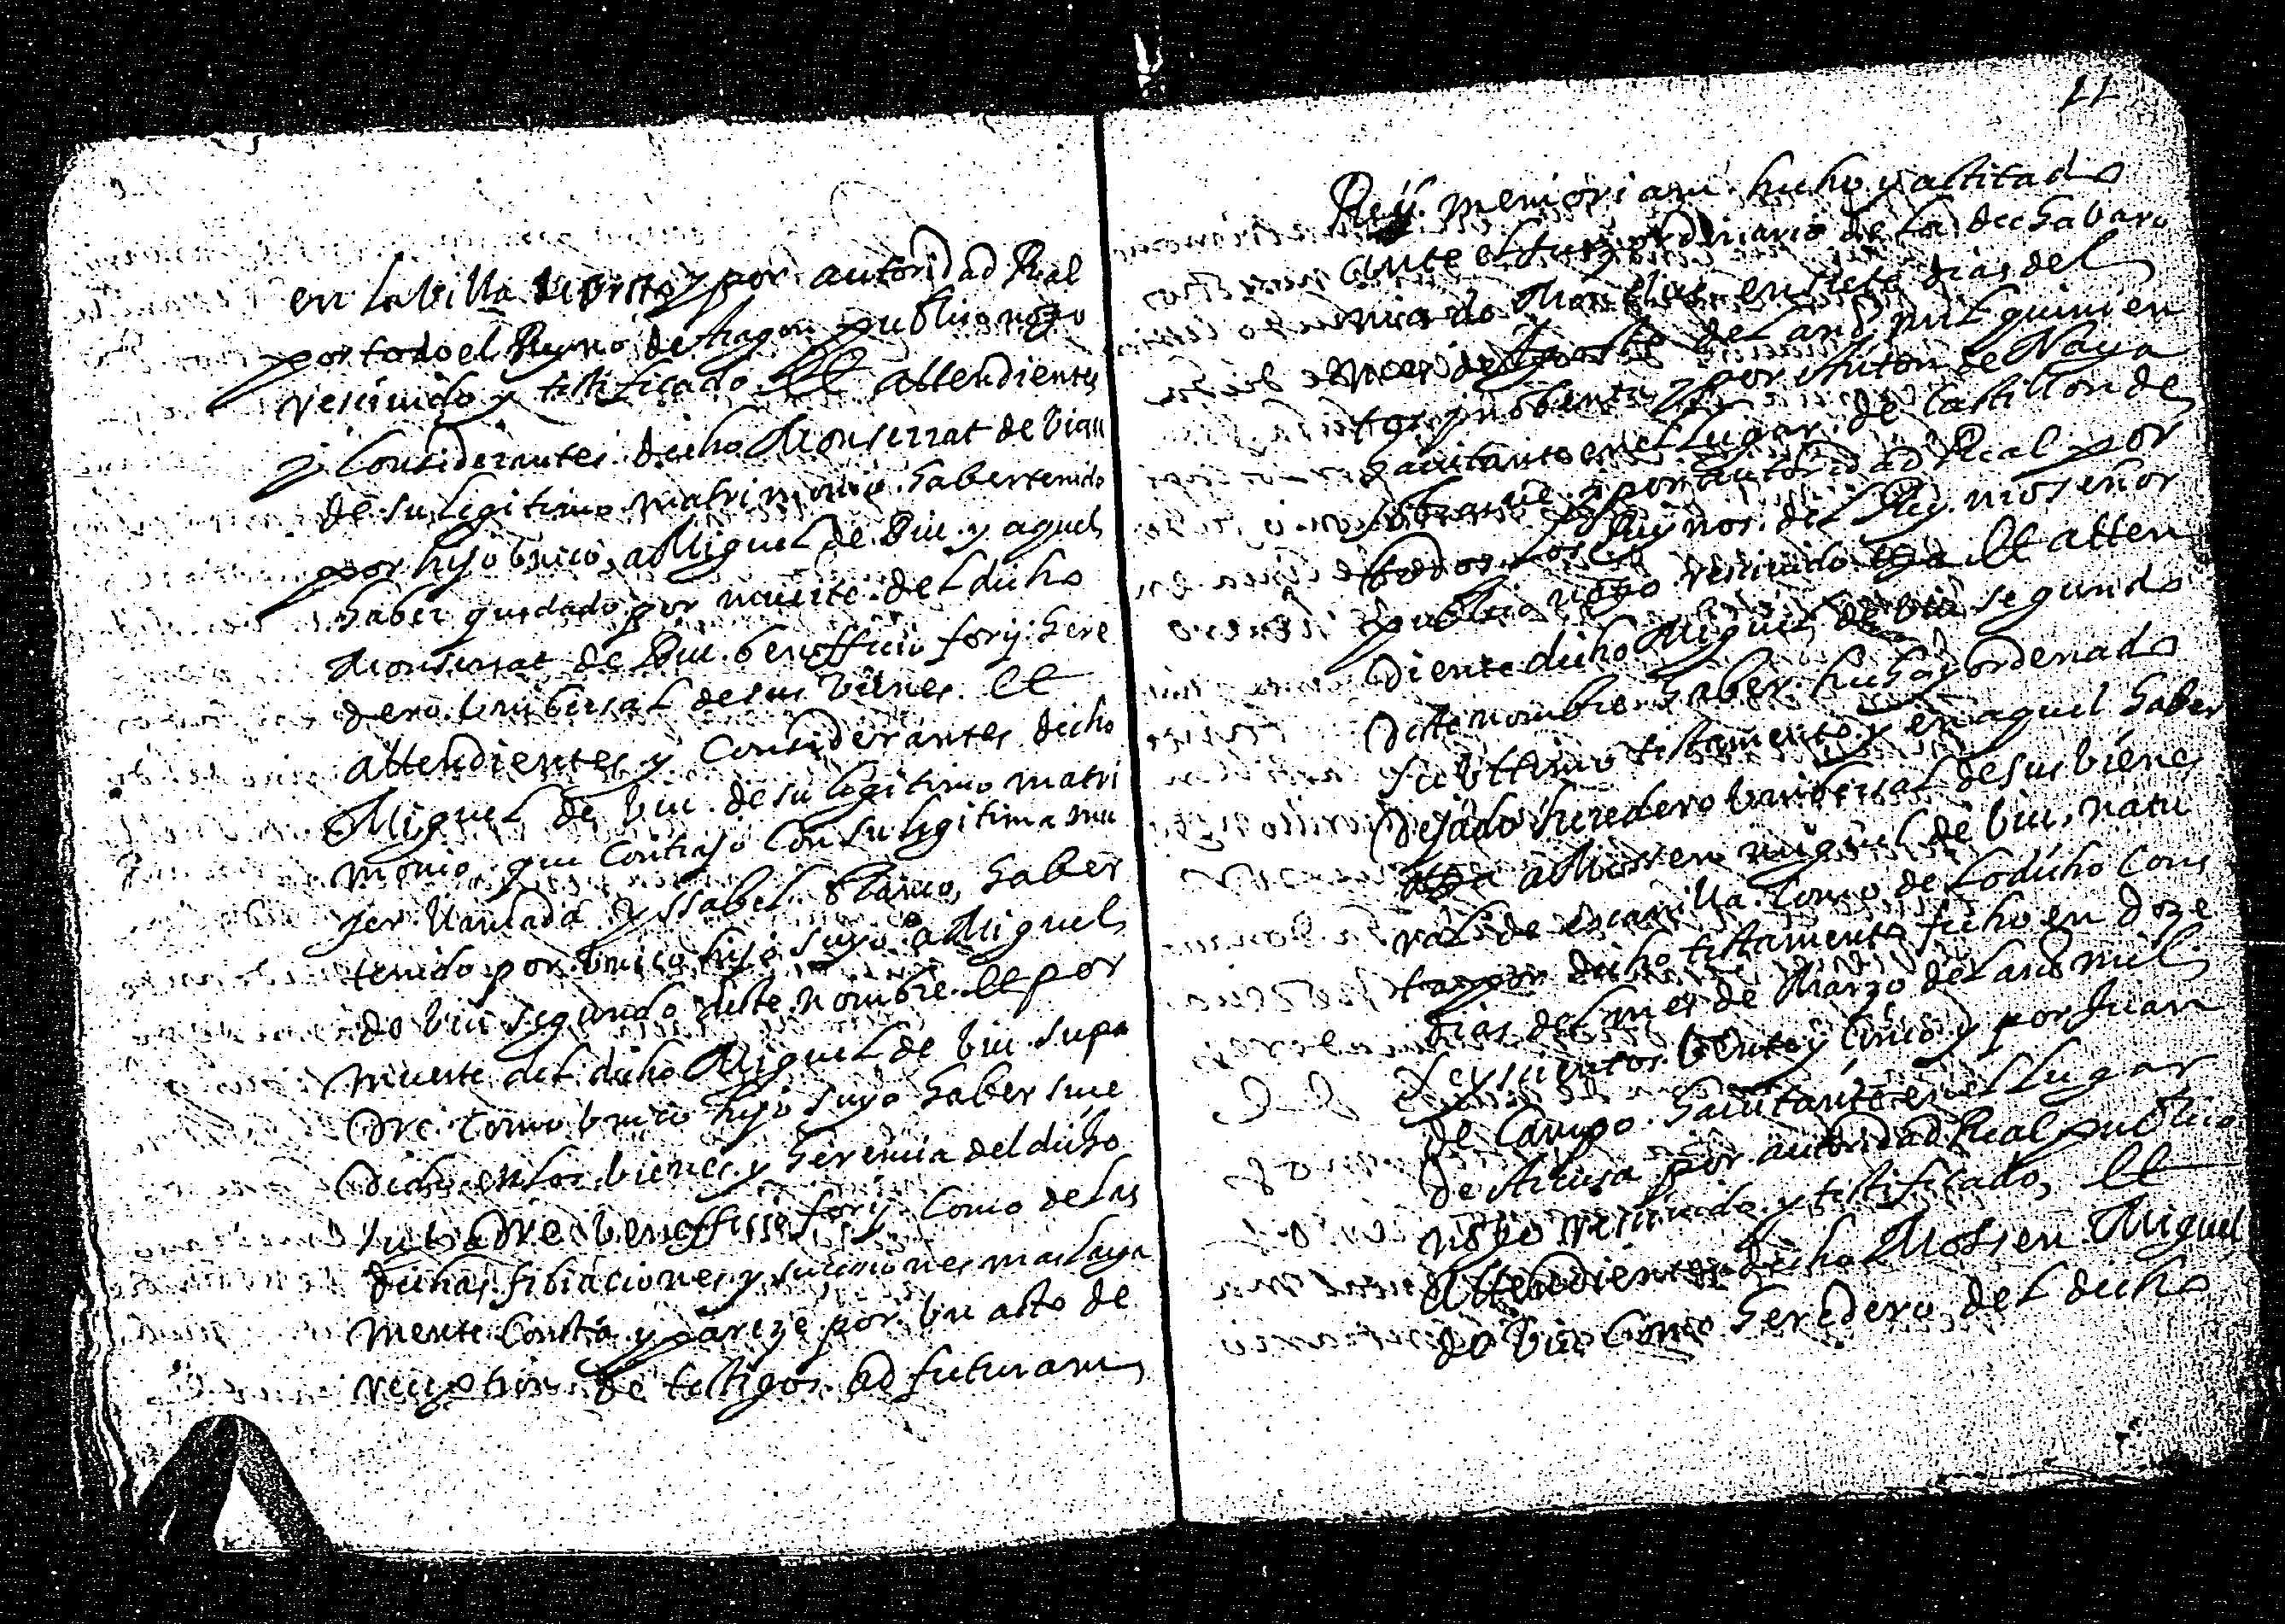 en la villa de  y por autoridad Real
por todo el Reyno de Aragon publico nogo
reciuido y testificado Et attendientes
y Considerantes dicho Monserrat de biu
de su legitimo matrimonio haber tenido
por hijo bnico a Miguel de Biu y aquel
haber quedado por muerte del dicho
Monserrat de Biu beneffitio forij here
dero bnibersal de sus bienes Et
attendientes y Considerantes dicho
Miguel de biu de su legitimo matri
monio que Contrajo Con su legitima mu
jer llamada yssabel blanco, haber
tenido por bnico hijo suyo a Miguel
de biu segundo deste nombre Et por
muerte del dicho Miguel de biu su pa
dre Como bnico hijo suyo haber suce
dido en los bienes y herencia del dicho
su padre beneffitio forij Como de las
dichas filiaciones y sucessiones mas larga
mente Consta y pareze por bn acto de
reception de testigos ad futuram
11
Rey memoriam hecho y actitado
ante el Juez ordinario de la dicha baro
nia de Monclus en siete dias del
mes de Agosto del año mil quinien
tos nobenta y por Anton de Naya
hauitante en el lugar de Castillon de
sobrarue y por autoridad Real por
todos los Reynos del Rey nro señor
publico nogo reciuido Et atten
diente dicho Miguel de biu segundo
deste nombre haber hecho y ordenado
su bltimo testamento y en aquel haber
dejado heredero bnibersal de sus bienes
a Mossen miguel de biu, natu
ral de escanilla Como de lo dicho Cons
ta por dicho testamento fecho en doze
dias del mes de Marzo del año mil
seyscientos beinte y Cinco y por Juan
de Campo hauitante en el lugar
de Atiusa por autoridad Real publico
nogo reciuido y testificado, Et
attendientes dicho Mossen Miguel
de biu Como heredero del dicho